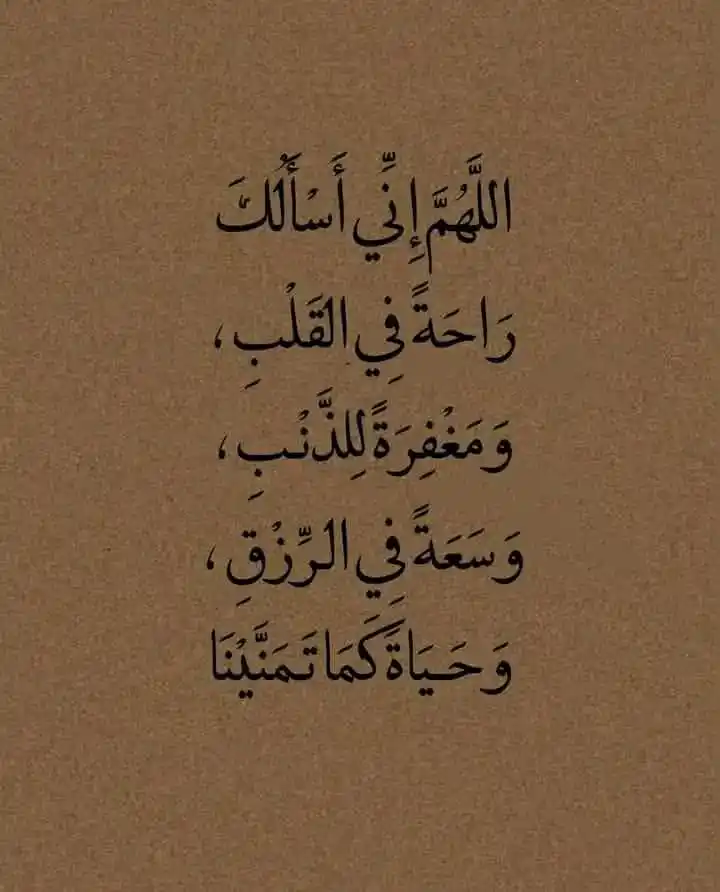 اللَّهُمَّ إِنِّي أَسْأَلُكَ
رَاحَةً فِي الْقَلْبِ ،
وَمَغْفِرَةً لِلذَّنْبِ ،
وَسَعَةً فِي الرِّزْقِ ،
وَحَيَاةً كَمَا تَمَنَّيْنَا